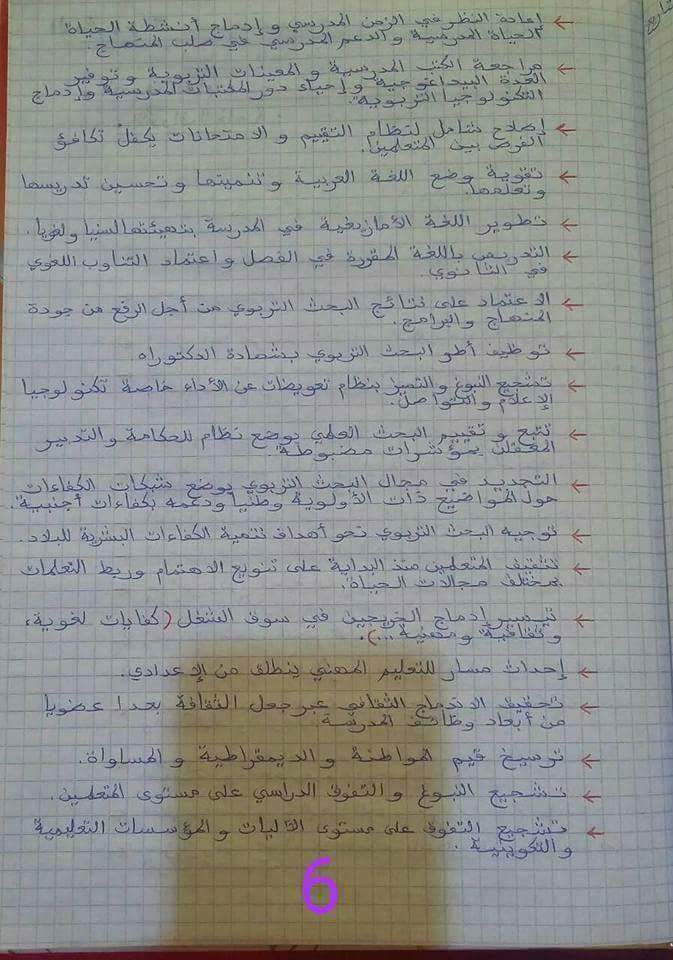 ← إعادة النظر في الزمن المدرسي وإدماج أنشطة الحياة
الحياة المدرسية والدعم المدرسي في صلب المنهاج.
← مراجعة الكتب المدرسية والمعينات التربوية وتوفير
العدة البيداغوجية وإحياء دور المكتبات المدرسية وإدماج
التكنولوجيا التربوية.
← إصلاح شامل لنظام التقييم والامتحانات يكفل تكافؤ
الفرص بين المتعلمين.
← تقوية وضع اللغة العربية وتنميتها وتحسين تدريسها
وتعلمها.
← تطوير اللغة الأمازيغية في المدرسة بتهيئتها لسنيا ولغويا.
← التدريس باللغة المقررة في الفصل واعتماد التناوب اللغوي
في الثانوي.
← الاعتماد على نتائج البحث التربوي من أجل الرفع من جودة
المنهاج والبرامج.
← توظيف أطر البحث التربوي بشهادة الدكتوراه
← تشجيع النبوغ والتميز بنظام تعويضات عن الأداء خاصة تكنولوجيا
الإعلام والتواصل.
← تتبع وتقييم البحث العلمي بوضع نظام للحكامة والتدبير
المعقلن بمؤشرات مضبوطة.
← التجديد في مجال البحث التربوي بوضع شبكات الكفاءات
حول المواضيع ذات الأولوية وطنيا ودعمه بكفاءات أجنبية.
← توجيه البحث التربوي نحو أهداف تنمية الكفاءات البشرية للبلاد.
← تثقيف المتعلمين منذ البداية على تنويع الاهتمام وربط التعلمات
بمختلف مجالات الحياة.
← تيسير إدماج الخريجين في سوق الشغل (كفايات لغوية،
وثقافية ومهنية...).
← إحداث مسار للتعليم المهني ينطلق من الإعدادي.
← تحقيق الاندماج الثقافي عبر جعل الثقافة بعدا عضويا
من أبعاد وظائف المدرسة
← ترسيخ قيم المواطنة والديمقراطية والمساواة.
← تشجيع النبوغ والتفوق الدراسي على مستوى المتعلمين.
← تشجيع التفوق على مستوى الآليات والمؤسسات التعليمية
والتكوينية.
6